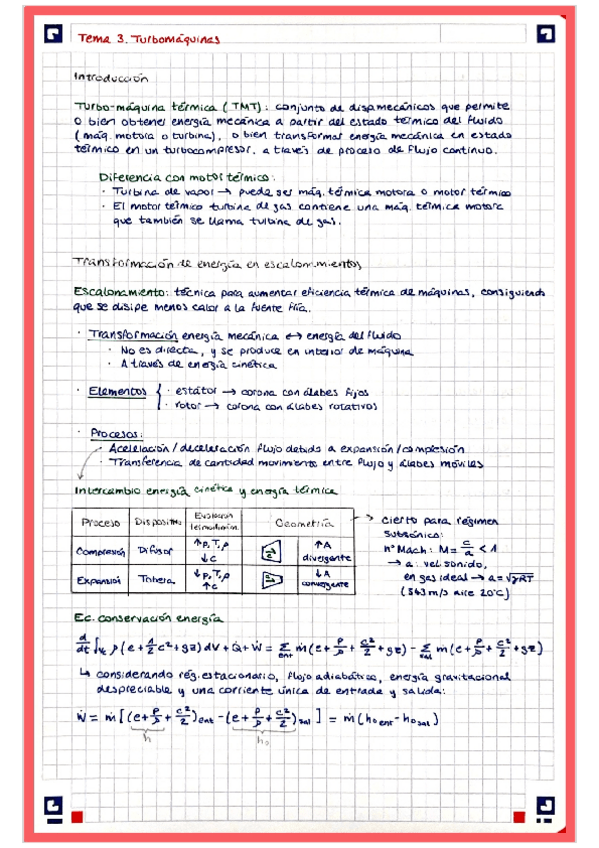 Tema 3. Turbomáquinas
Introducción
Turbo-máquina térmica (TMT): conjunto de disp. mecánicos que permite
o bien obtener energía mecánica a partir del estado térmico del fluido
(máq. motora o turbina), o bien transformar energía mecánica en estado
térmico en un turbocompresor, a través de proceso de flujo continuo.
Diferencia con motor térmico:
· Turbina de vapor → puede ser máq. térmica motora o motor térmico
· El motor térmico turbina de gas contiene una máq. térmica motora
que también se llama turbina de gas.
Transformación de energía en escalonamientos
Escalonamiento: técnica para aumentar eficiencia térmica de máquinas, consiguiendo
que se disipe menos calor a la fuente fría.
· Transformación energía mecánica ↔ energía del fluido
· No es directa, y se produce en interior de máquina
· A través de energía cinética
· Elementos { · estátor → corona con álabes fijos
· rotor → corona con álabes rotativos
· Procesos:
· Aceleración / deceleración flujo debido a expansión / compresión
· Transferencia de cantidad movimiento entre flujo y álabes móviles
Intercambio energía cinética y energía térmica
Proceso Dispositivo Evolución termodinám. Geometría
Compresión Difusor ↑p, T, ρ ↓c c ↑A divergente
Expansión Tobera ↓p, T, ρ ↑c c ↓A convergente
→ cierto para régimen
subsónico:
nº Mach: M = c/a < 1
→ a: vel sonido,
en gas ideal → a = √γRT
(343 m/s aire 20ºC)
Ec. conservación energía
d/dt ∫vc ρ(e + 1/2 c² + gz) dV + Q̇ + Ẇ = Σent ṁ(e + p/ρ + c²/2 + gz) - Σsal ṁ(e + p/ρ + c²/2 + gz)
↳ considerando rég. estacionario, flujo adiabático, energía gravitacional
despreciable y una corriente única de entrada y salida:
Ẇ = ṁ[(e + p/ρ + c²/2)ent - (e + p/ρ + c²/2)sal] = ṁ(h₀ent - h₀sal)
h h₀